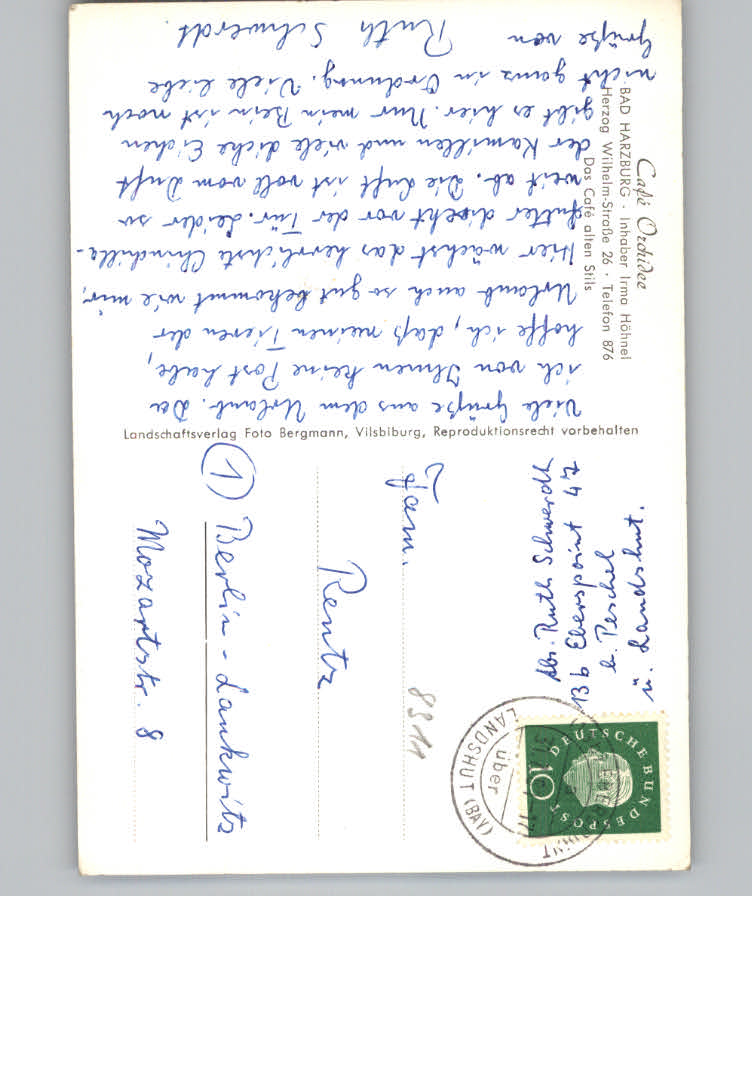 Café Orchidee
BAD HARZBURG · Inhaber Irma Höhnel
Herzog Wilhelm-Straße 26 · Telefon 876
Das Café alten Stils
Viele Grüße aus dem Urlaub. Da
ich von Ihnen keine Post habe,
hoffe ich, daß meinen Tieren der
Urlaub auch so gut bekommt wie mir,
Hier wächst das herrlichste Chinchilla-
futter direkt vor der Tür. Leider so
weit ab. Die Luft ist voll vom Duft
der Kamillen und viele dicke Eichen
gibt es hier. Nur mein Bein ist noch
nicht ganz in Ordnung. Viele liebe
Grüße von Ruth Schwerdt.
Landschaftsverlag Foto Bergmann, Vilsbiburg, Reproduktionsrecht vorbehalten
Abs. Ruth Schwerdt
13b Eberspoint 47
b. Peschel
ü. Landshut.
DEUTSCHE BUNDESPOST
10
über
LANDSHUT (BAY)
8911
Fam.
Rentz
(1) Berlin-Lankwitz
Mozartstr. 8